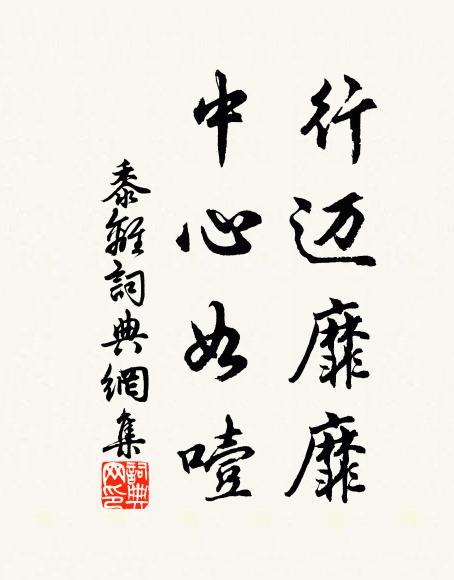 行迈靡靡
中心如噎
黍離詞典網集
詞典
网印